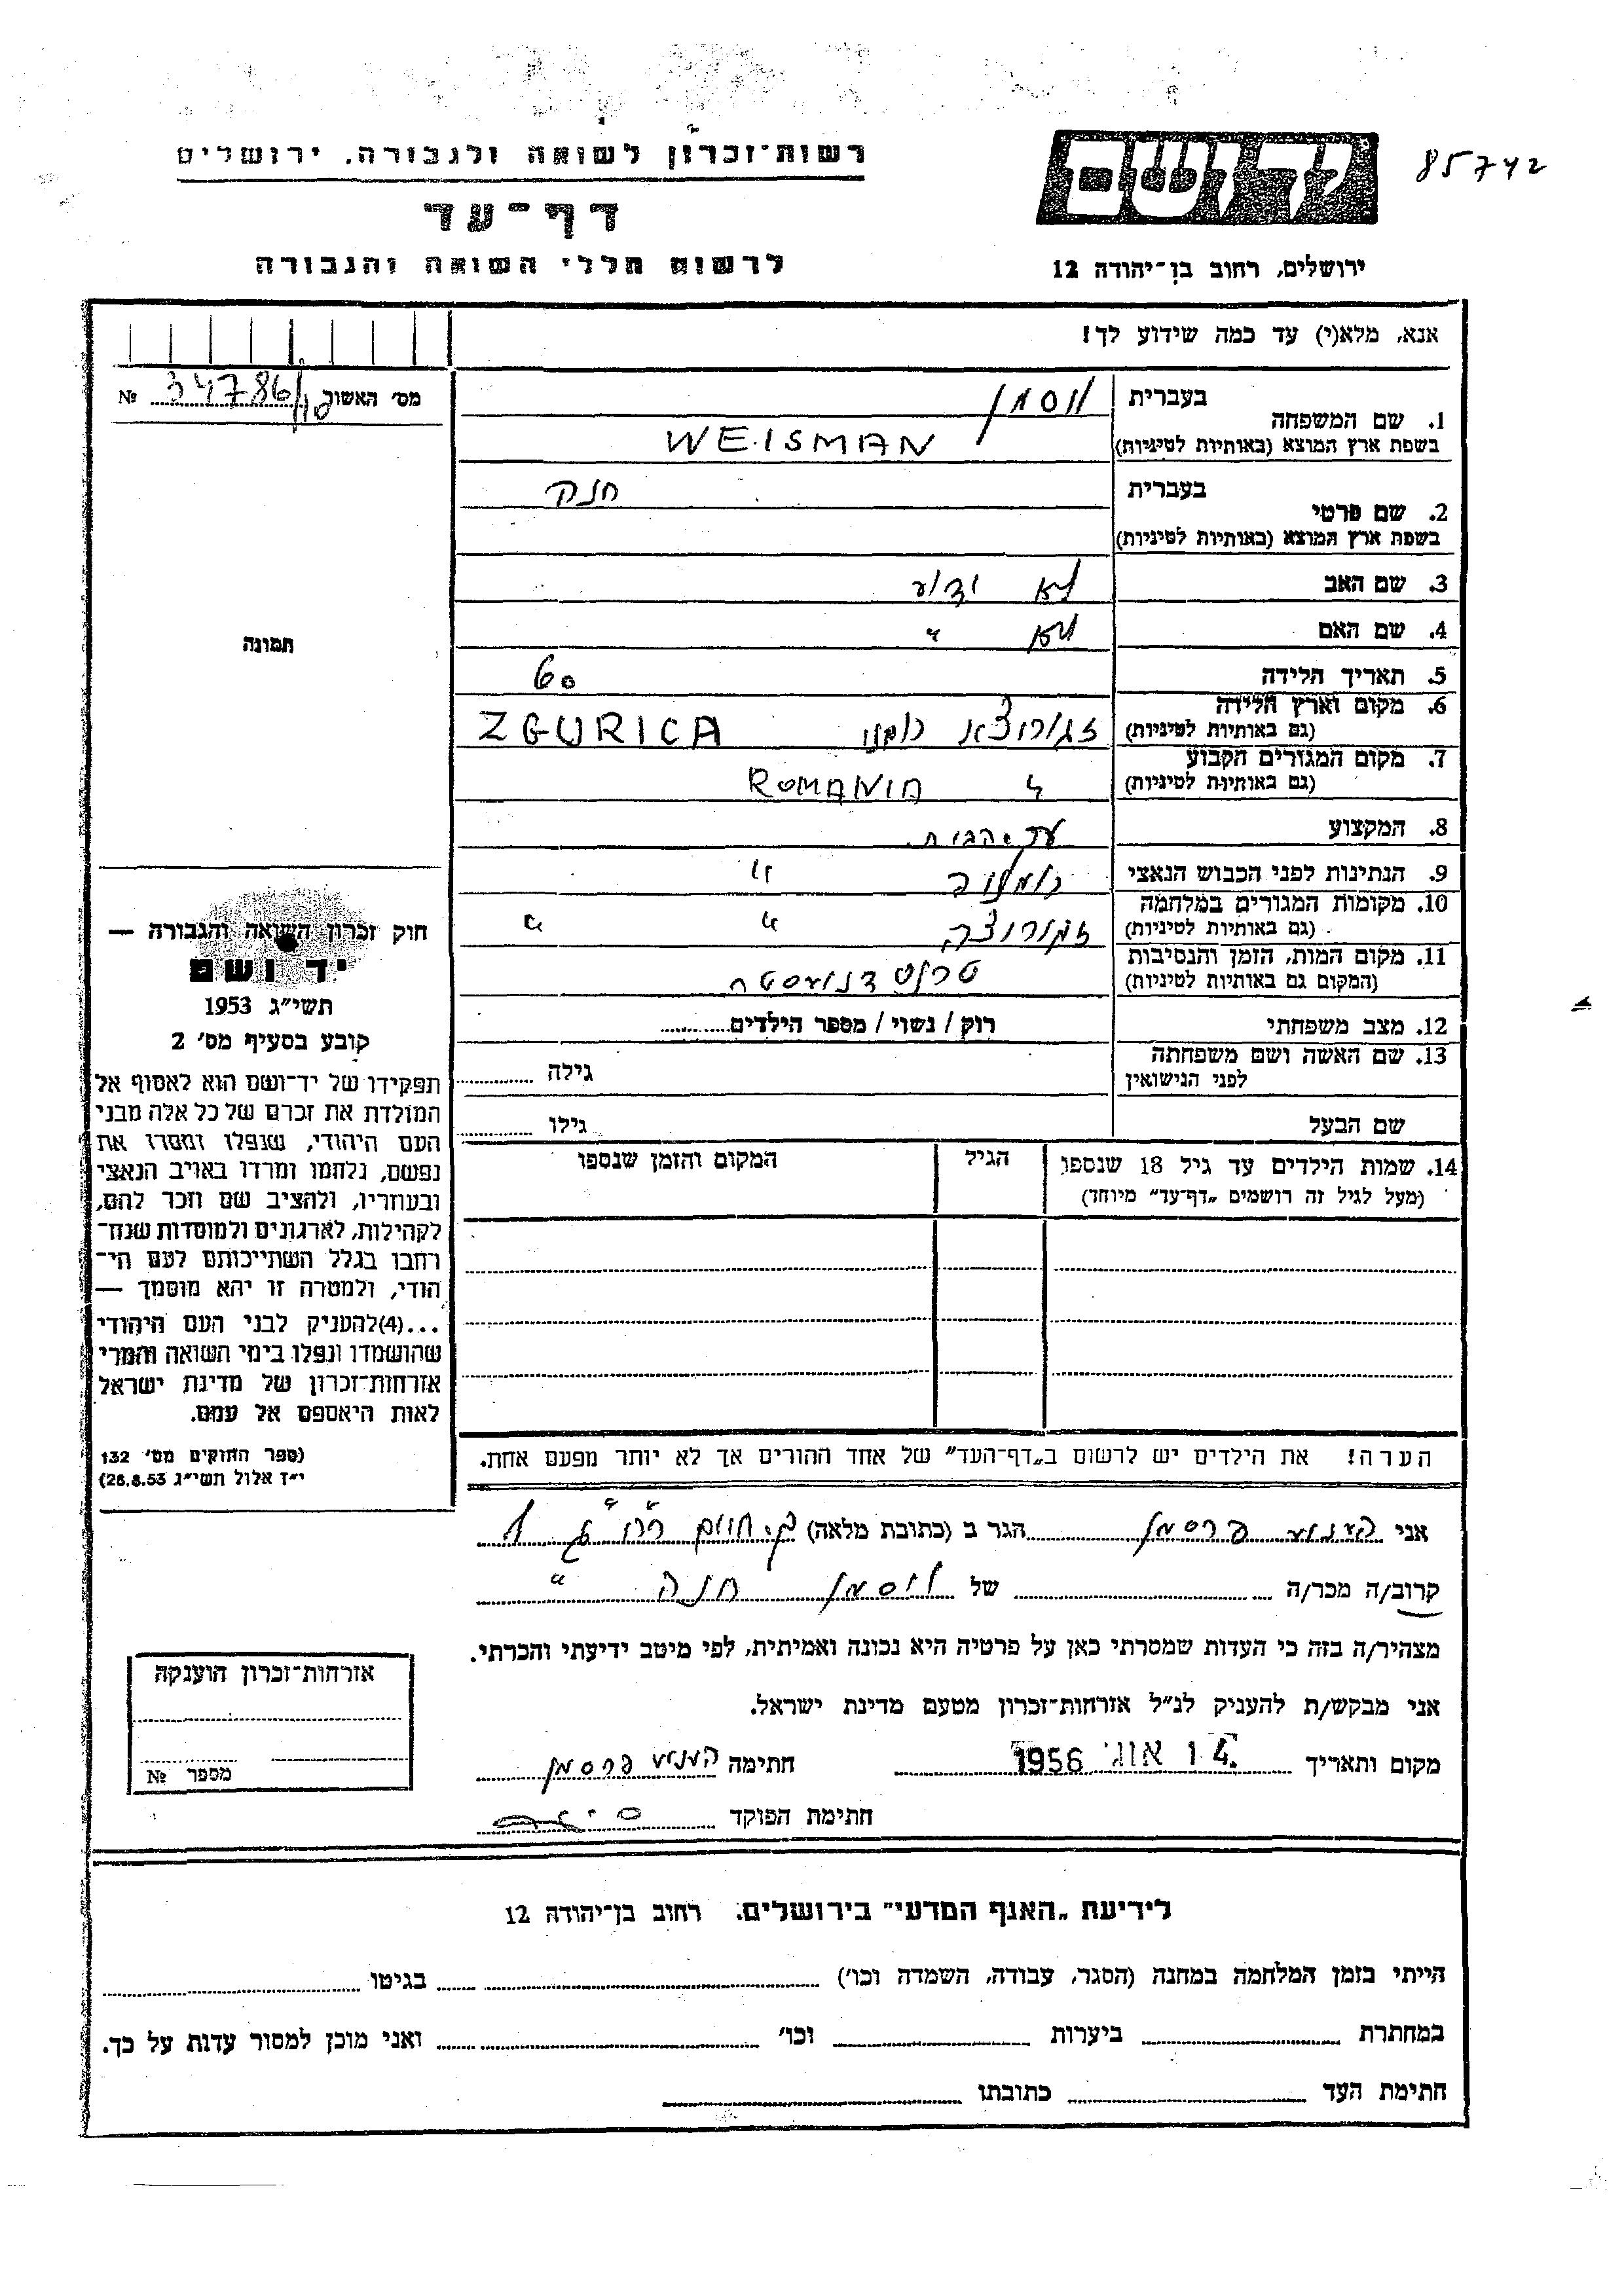 רשות־זכרון לשואה ולגבורה, ירושלים
יד ושם
85742
דף־עד
לרשום חללי השואה והגבורה
ירושלים, רחוב בן־יהודה 12
אנא, מלא(י) עד כמה שידוע לך!
מס׳ האשור 34786 №
1. שם המשפחה
בעברית ויסמן
בשפת ארץ המוצא (באותיות לטיניות) WEISMAN
2. שם פרטי
בעברית חנה
בשפת ארץ המוצא (באותיות לטיניות)
3. שם האב לא ידוע
4. שם האם לא "
תמונה
5. תאריך הלידה 60
6. מקום וארץ הלידה
(גם באותיות לטיניות) ZGURICA
7. מקום המגורים הקבוע
(גם באותיות לטיניות) " ROMANIA
8. המקצוע עקרת הבית
9. הנתינות לפני הכבוש הנאצי רומניה "
10. מקומות המגורים במלחמה
(גם באותיות לטיניות) זגוריצה " "
11. מקום המות, הזמן והנסיבות
(המקום גם באותיות לטיניות) טרנסדניסטריה
12. מצב משפחתי רוק / נשוי / מספר הילדים
13. שם האשה ושם משפחתה
לפני הנישואין גילה
שם הבעל גילו
14. שמות הילדים עד גיל 18 שנספו הגיל המקום והזמן שנספו
(מעל לגיל זה רושמים „דף־עד” מיוחד)
חוק זכרון השואה והגבורה —
יד ושם
תשי״ג 1953
קובע בסעיף מס׳ 2
תפקידו של יד־ושם הוא לאסוף אל
המולדת את זכרם של כל אלה מבני
העם היהודי, שנפלו ומסרו את
נפשם, נלחמו ומרדו באויב הנאצי
ובעוזריו, ולהציב שם וזכר להם,
לקהילות, לארגונים ולמוסדות שנח־
רחבו בגלל השתייכותם לעם הי־
הודי, ולמטרה זו יהא מוסמך —
...(4)להעניק לבני העם היהודי
שהושמדו ונפלו בימי השואה והמרי
אזרחות־זכרון של מדינת ישראל
לאות היאספם אל עמם.
(ספר החוקים מס׳ 132
י״ז אלול תשי״ג 28.8.53)
הערה! את הילדים יש לרשום ב„דף־העד” של אחד ההורים אך לא יותר מפעם אחת.
אני פרסמן הגר ב (כתובת מלאה)
קרוב/ה מכר/ה של ויסמן חנה
מצהיר/ה בזה כי העדות שמסרתי כאן על פרטיה היא נכונה ואמיתית, לפי מיטב ידיעתי והכרתי.
אני מבקש/ת להעניק לנ״ל אזרחות־זכרון מטעם מדינת ישראל.
מקום ותאריך 14. אוג׳ 1956 חתימה פרסמן
חתימת הפוקד
אזרחות־זכרון הוענקה
מספר №
לידיעת „האגף המדעי” בירושלים. רחוב בן־יהודה 12
הייתי בזמן המלחמה במחנה (הסגר, עבודה, השמדה וכו׳) בגיטו
במחתרת ביערות וכו׳ ואני מוכן למסור עדות על כך.
חתימת העד כתובתו